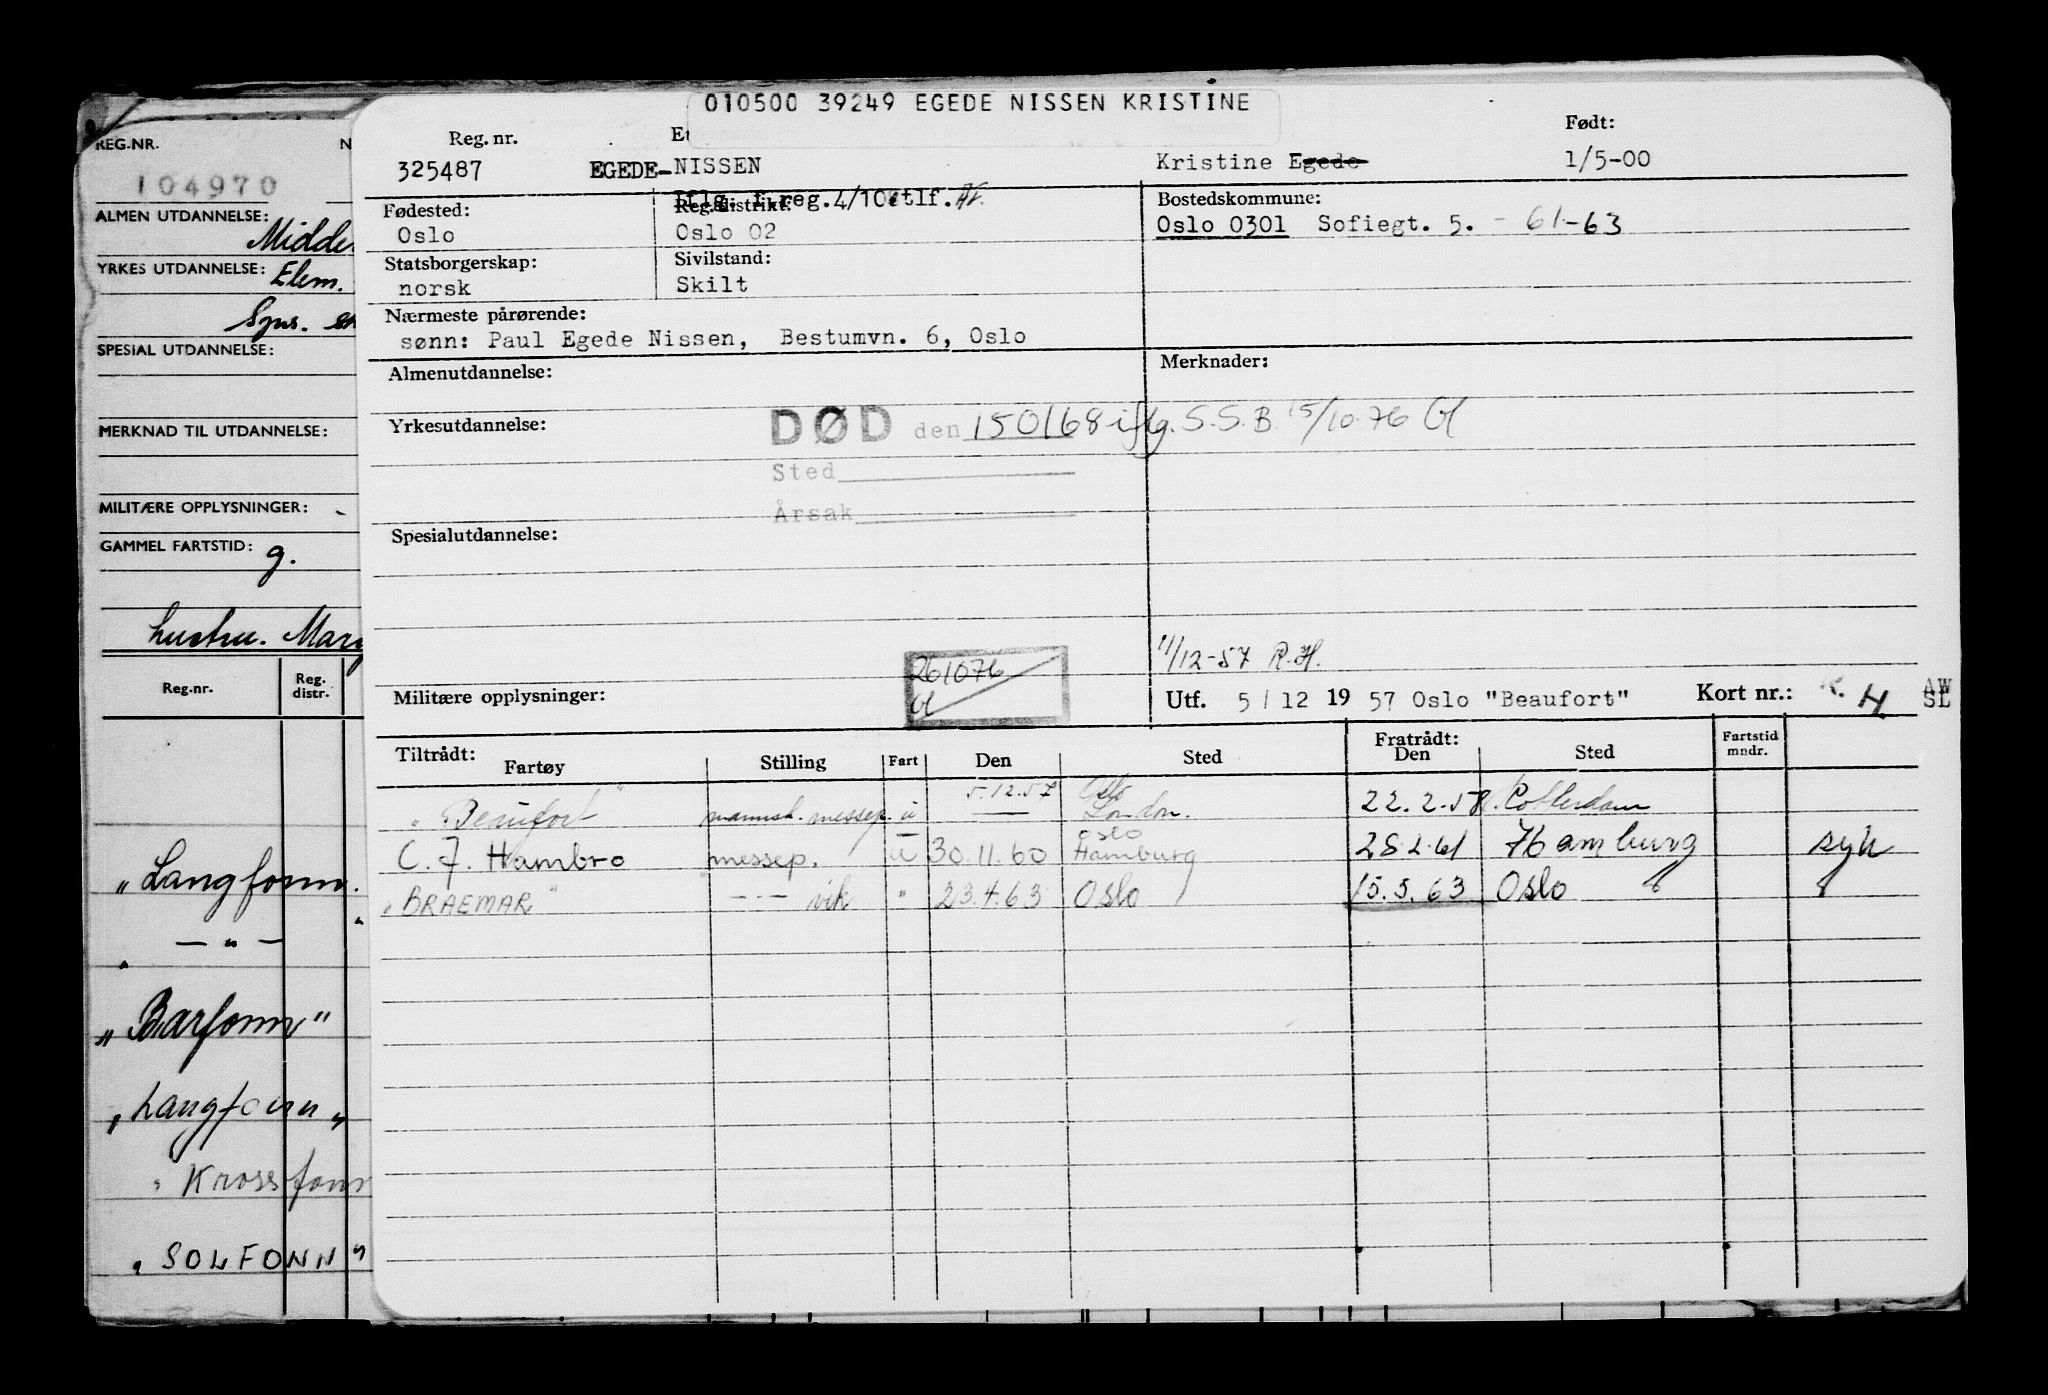 010500 39249 EGEDE NISSEN KRISTINE
Reg. nr. Født:
325487 EGEDE-NISSEN Kristine Egede 1/5-00
Iflg. f.reg.4/10 tlf.
Fødested: Reg. distrikt: Bostedskommune:
Oslo Oslo 02 Oslo 0301 Sofiegt. 5. - 61-63
Statsborgerskap: Sivilstand:
norsk Skilt
Nærmeste pårørende:
sønn: Paul Egede Nissen, Bestumvn. 6, Oslo
Almenutdannelse: Merknader:
Yrkesutdannelse: DØD den 150168 iflg. S.S.B. 15/10-76 Gl
Sted
Årsak
Spesialutdannelse:
11/12-57 R.H.
261076
Gl
Militære opplysninger: Utf. 5/12 19 57 Oslo "Beaufort" Kort nr.: K. H. AW
SL
Tiltrådt: Fratrådt:
Fartøy Stilling Fart Den Sted Den Sted Fartstid mndr.
"Beaufort" mannsk. messep. u 5.12.57 Oslo London. 22.2.58 Rotterdam
C. J. Hambro messep. u 30.11.60 Oslo Hamburg 28.2.61 Hamburg syk
"BRAEMAR" -"- vik " 23.4.63 Oslo 15.5.63 Oslo
REG.NR. N
104970
ALMEN UTDANNELSE:
YRKES UTDANNELSE: Elem.
SPESIAL UTDANNELSE:
MERKNAD TIL UTDANNELSE:
MILITÆRE OPPLYSNINGER: -
GAMMEL FARTSTID: g.
hustru. Mar
Reg.nr. Reg. distr.
"Langfonn.
-"-
"Barfonn"
"Langfonn"
"Krossfonn
"SOLFONN"